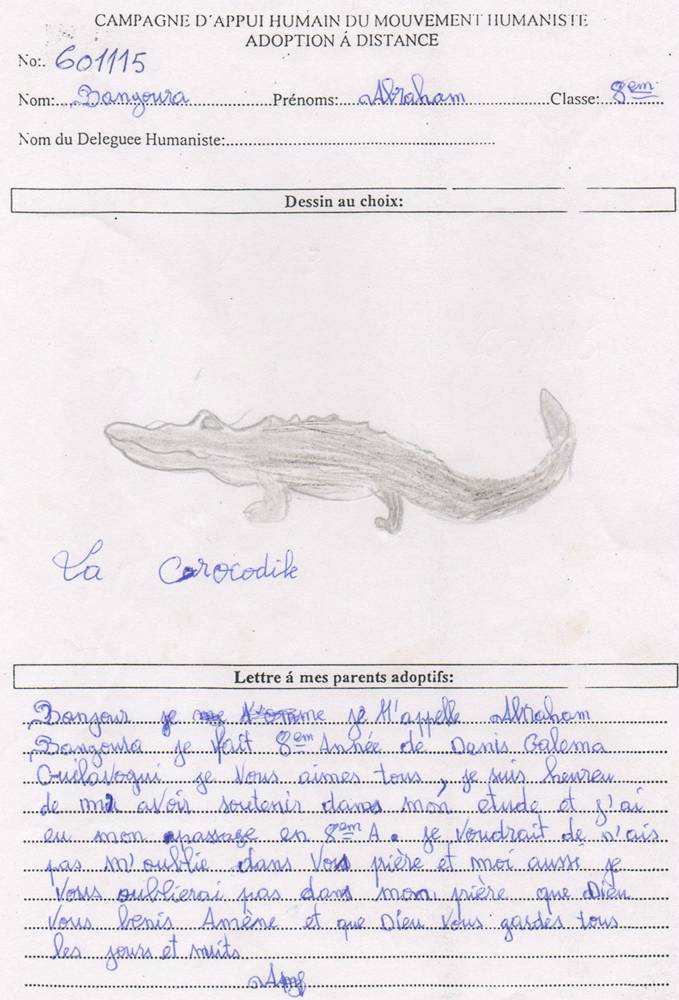 CAMPAGNE D'APPUI HUMAIN DU MOUVEMENT HUMANISTE
ADOPTION Á DISTANCE
No:. 601115
Nom:.. Bangoura Prénoms:... Abraham Classe:. 8em
Nom du Deleguee Humaniste:
Dessin au choix:
La Corocodile
Lettre á mes parents adoptifs:
Bonjour je me je M'appelle Abraham
Bangoura je fait 8em Année de Danis Galema
Guilavogui je vous aimes tous, je suis heureu
de m' avoir soutenir dans mon etude et j'ai
eu mon passage en 8em A. je voudrait de n'ais
pas m'oublie dans vos prière et moi aussi je
vous oublierai pas dans mon prière que Dieu
vous benis Amène et que Dieu vous gardes tous
les jours et nuits